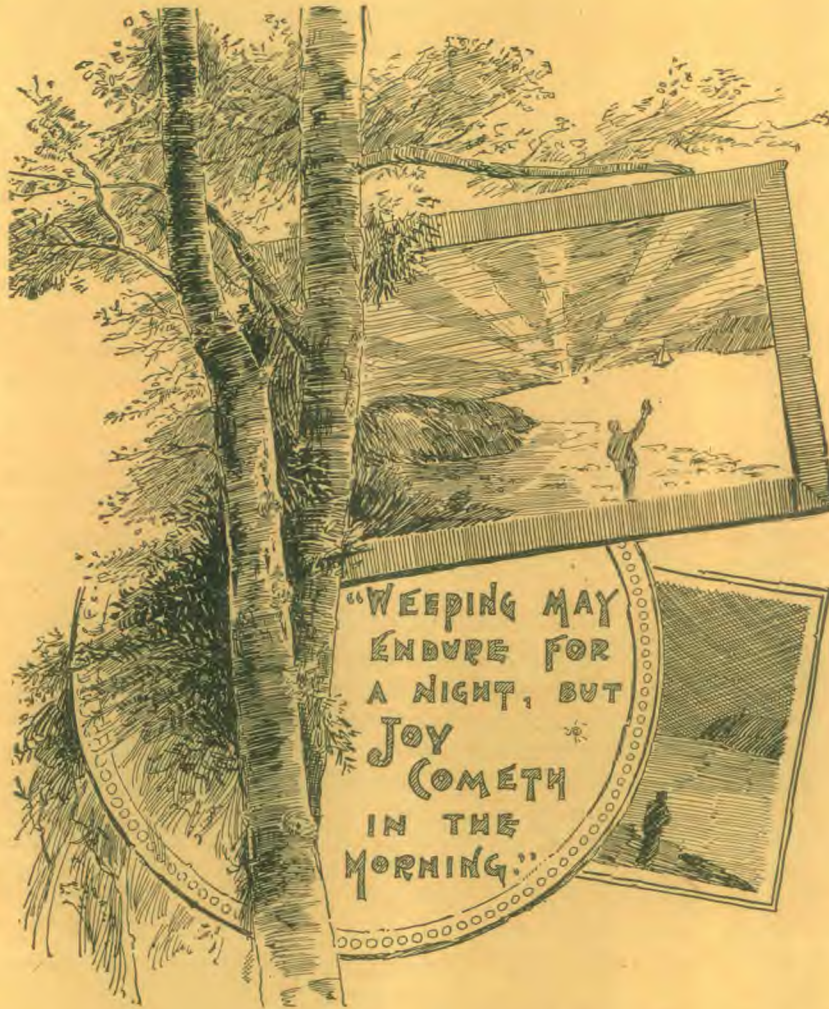 “WEEPING MAY
ENDURE FOR
A NIGHT, BUT
JOY
COMETH
IN THE
MORNING.”